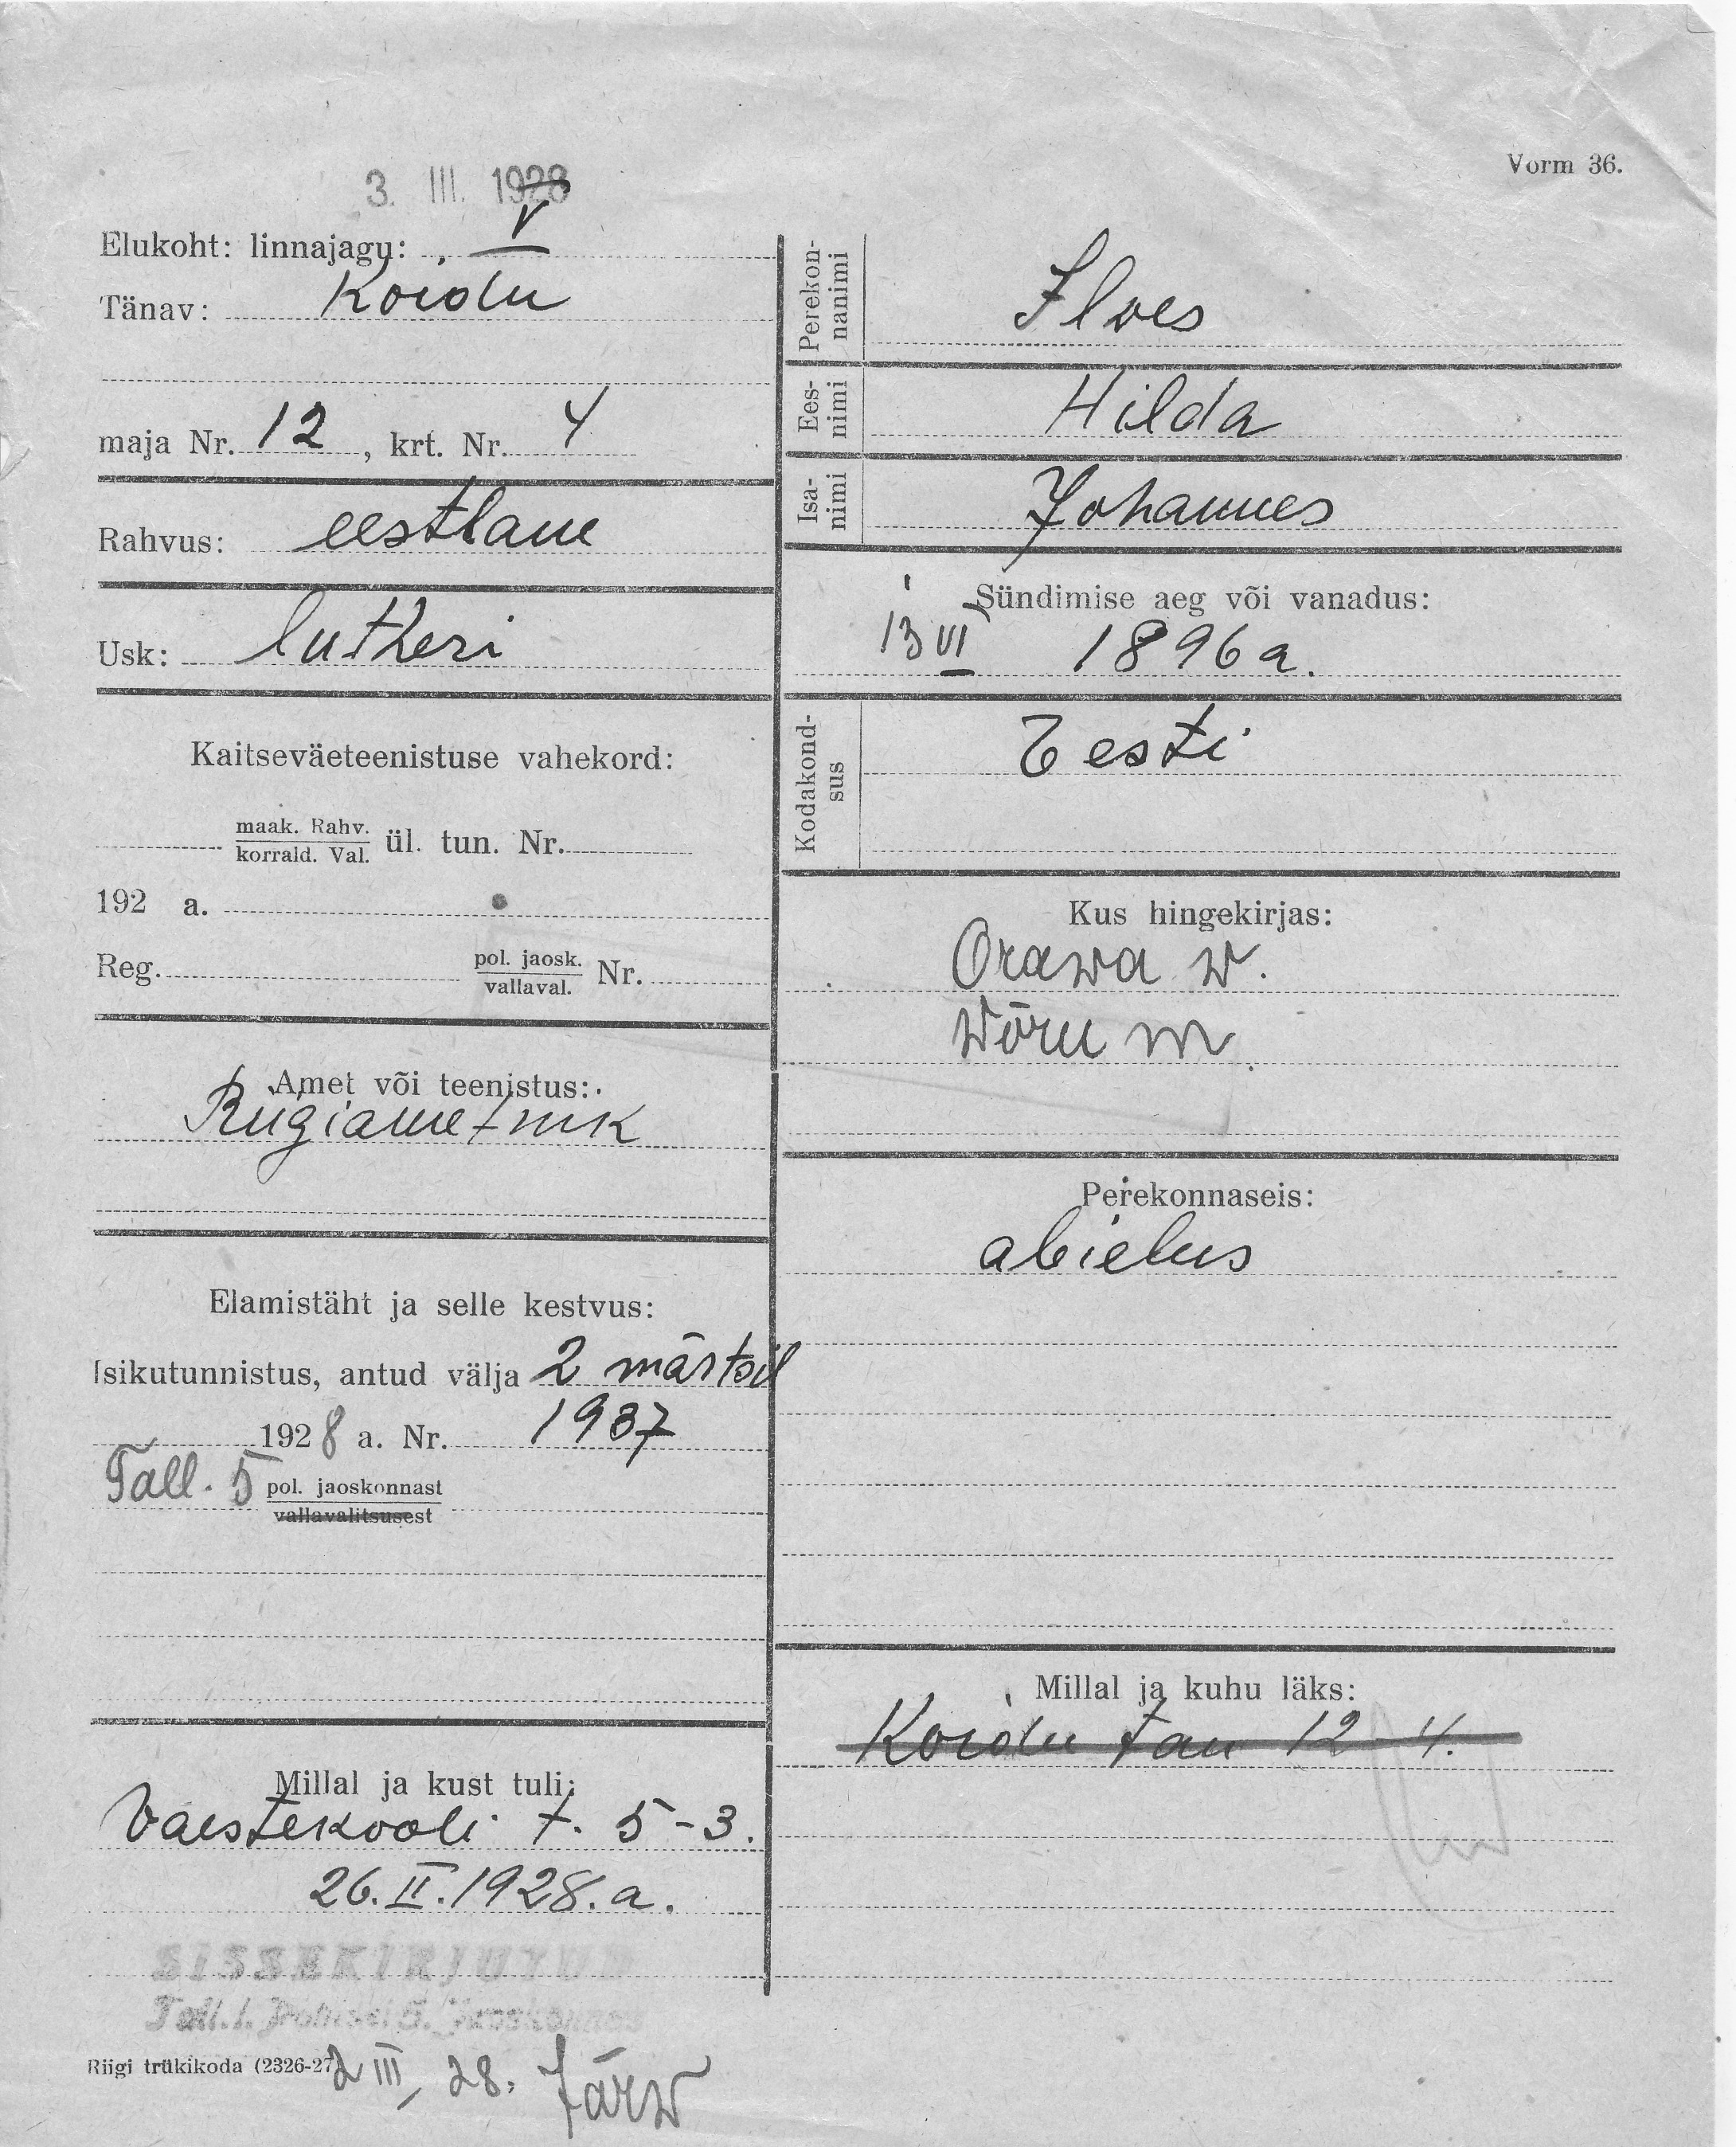 Vorm 36.
3. III. 1928
Elukoht: linnajagu: V
Tänav: Koidu
maja Nr. 12, krt. Nr. 4
Rahvus: eestlane
Usk: lutheri
Kaitseväeteenistuse vahekord:
maak. Rahv.
korrald. Val. ül. tun. Nr.
192 a.
Reg. pol. jaosk.
vallaval. Nr.
Amet või teenistus:
Riigiametnik
Elamistäht ja selle kestvus:
Isikutunnistus, antud välja 2 märtsil
1928 a. Nr. 1937
Tall. 5 pol. jaoskonnast
vallavalitsusest
Millal ja kust tuli:
Vaestekooli t. 5-3.
26. II. 1928. a.
SISSEKIRJUTUD
Tall. l. Politsei 5. Jaoskonnas
Riigi trükikoda (2326-27)
2 III 28. Järw
Perekon-
nanimi
Ilves
Ees-
nimi
Hilda
Isa-
nimi
Johannes
Sündimise aeg või vanadus:
13 VI 1896 a.
Kodakond-
sus
Eesti
Kus hingekirjas:
Orawa w.
Wõru m
Perekonnaseis:
abielus
Millal ja kuhu läks:
Koidu tan 12-4.